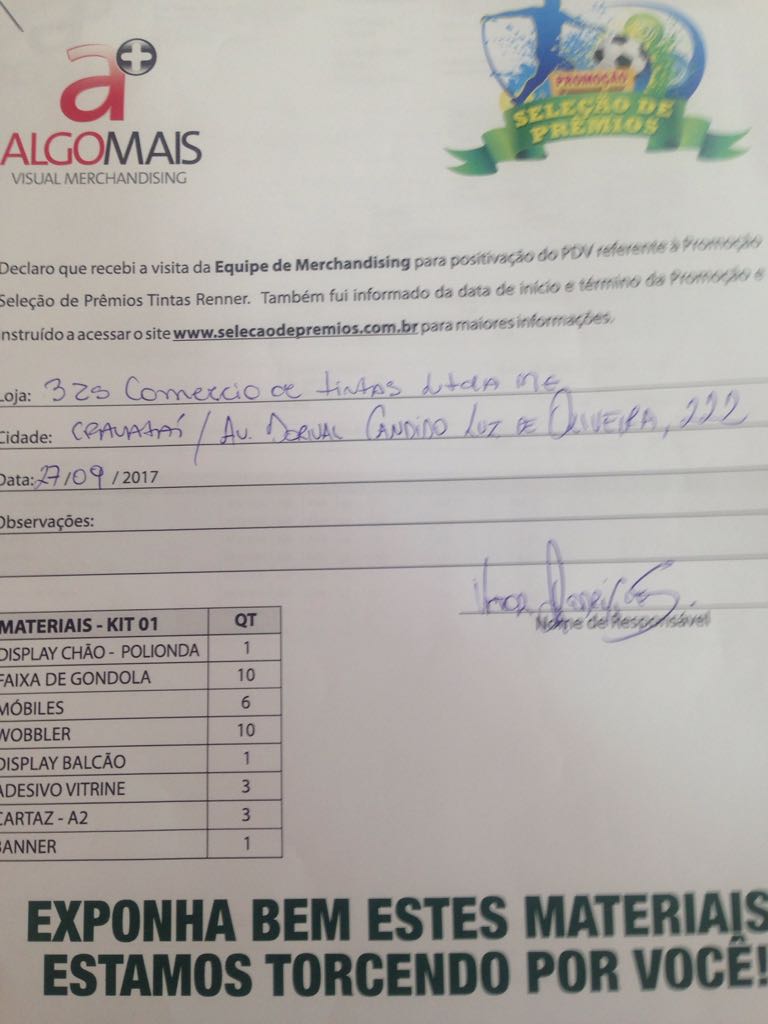 a+
ALGOMAIS
VISUAL MERCHANDISING
PROMOÇÃO
SELEÇÃO DE
PRÊMIOS
Declaro que recebi a visita da Equipe de Merchandising para positivação do PDV referente à Promoção
Seleção de Prêmios Tintas Renner. Também fui informado da data de início e término da Promoção e
instruído a acessar o site www.selecaodepremios.com.br para maiores informações.
Loja: 329 Comercio de tintas Ltda ME
Cidade: GRAVATAÍ / AV. DORIVAL CANDIDO LUZ DE OLIVEIRA, 222
Data: 27/09 / 2017
Observações:
Nome de Responsável
MATERIAIS - KIT 01 QT
DISPLAY CHÃO - POLIONDA 1
FAIXA DE GONDOLA 10
MÓBILES 6
WOBBLER 10
DISPLAY BALCÃO 1
ADESIVO VITRINE 3
CARTAZ - A2 3
BANNER 1
EXPONHA BEM ESTES MATERIAIS
ESTAMOS TORCENDO POR VOCÊ!